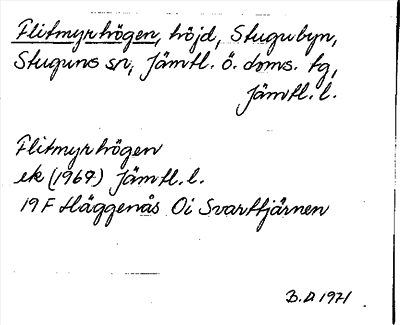 Flitmyrhögen, höjd, Stugubyn,
Stuguns sn, Jämtl. ö. doms. tg,
Jämtl. l.
Flitmyrhögen
ek (1967) Jämtl. l.
19F Häggenås Oi Svarttjärnen
B.D 1971